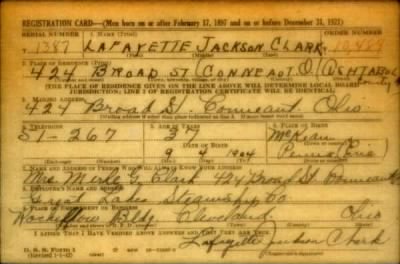 REGISTRATION CARD—(Men born on or after February 17, 1897 and on or before December 31, 1921)
SERIAL NUMBER 1. NAME (Print) ORDER NUMBER
T 1387 LAFAYETTE JACKSON CLARK 10,489
2. PLACE OF RESIDENCE (Print)
424 BROAD ST CONNEAUT O. ASHTABULA
(THE PLACE OF RESIDENCE GIVEN ON THE LINE ABOVE WILL DETERMINE LOCAL BOARD
JURISDICTION; LINE 2 OF REGISTRATION CERTIFICATE WILL BE IDENTICAL)
3. MAILING ADDRESS
424 Broad St. Conneaut Ohio.
4. TELEPHONE 5. AGE IN YEARS 6. PLACE OF BIRTH
51-267 37 McKean
DATE OF BIRTH
9 4 1904 Penna (Erie)
7. NAME AND ADDRESS OF PERSON WHO WILL ALWAYS KNOW YOUR ADDRESS
Mrs. G. Clark 424 Broad St. Conneaut
8. EMPLOYER'S NAME AND ADDRESS
Great Lakes Steamship Co
9. PLACE OF EMPLOYMENT OR BUSINESS
Rockefeller Bldg. Cleveland Ohio
I AFFIRM THAT I HAVE VERIFIED ABOVE ANSWERS AND THAT THEY ARE TRUE.
D. S. S. Form 1
Lafayette Jackson Clark